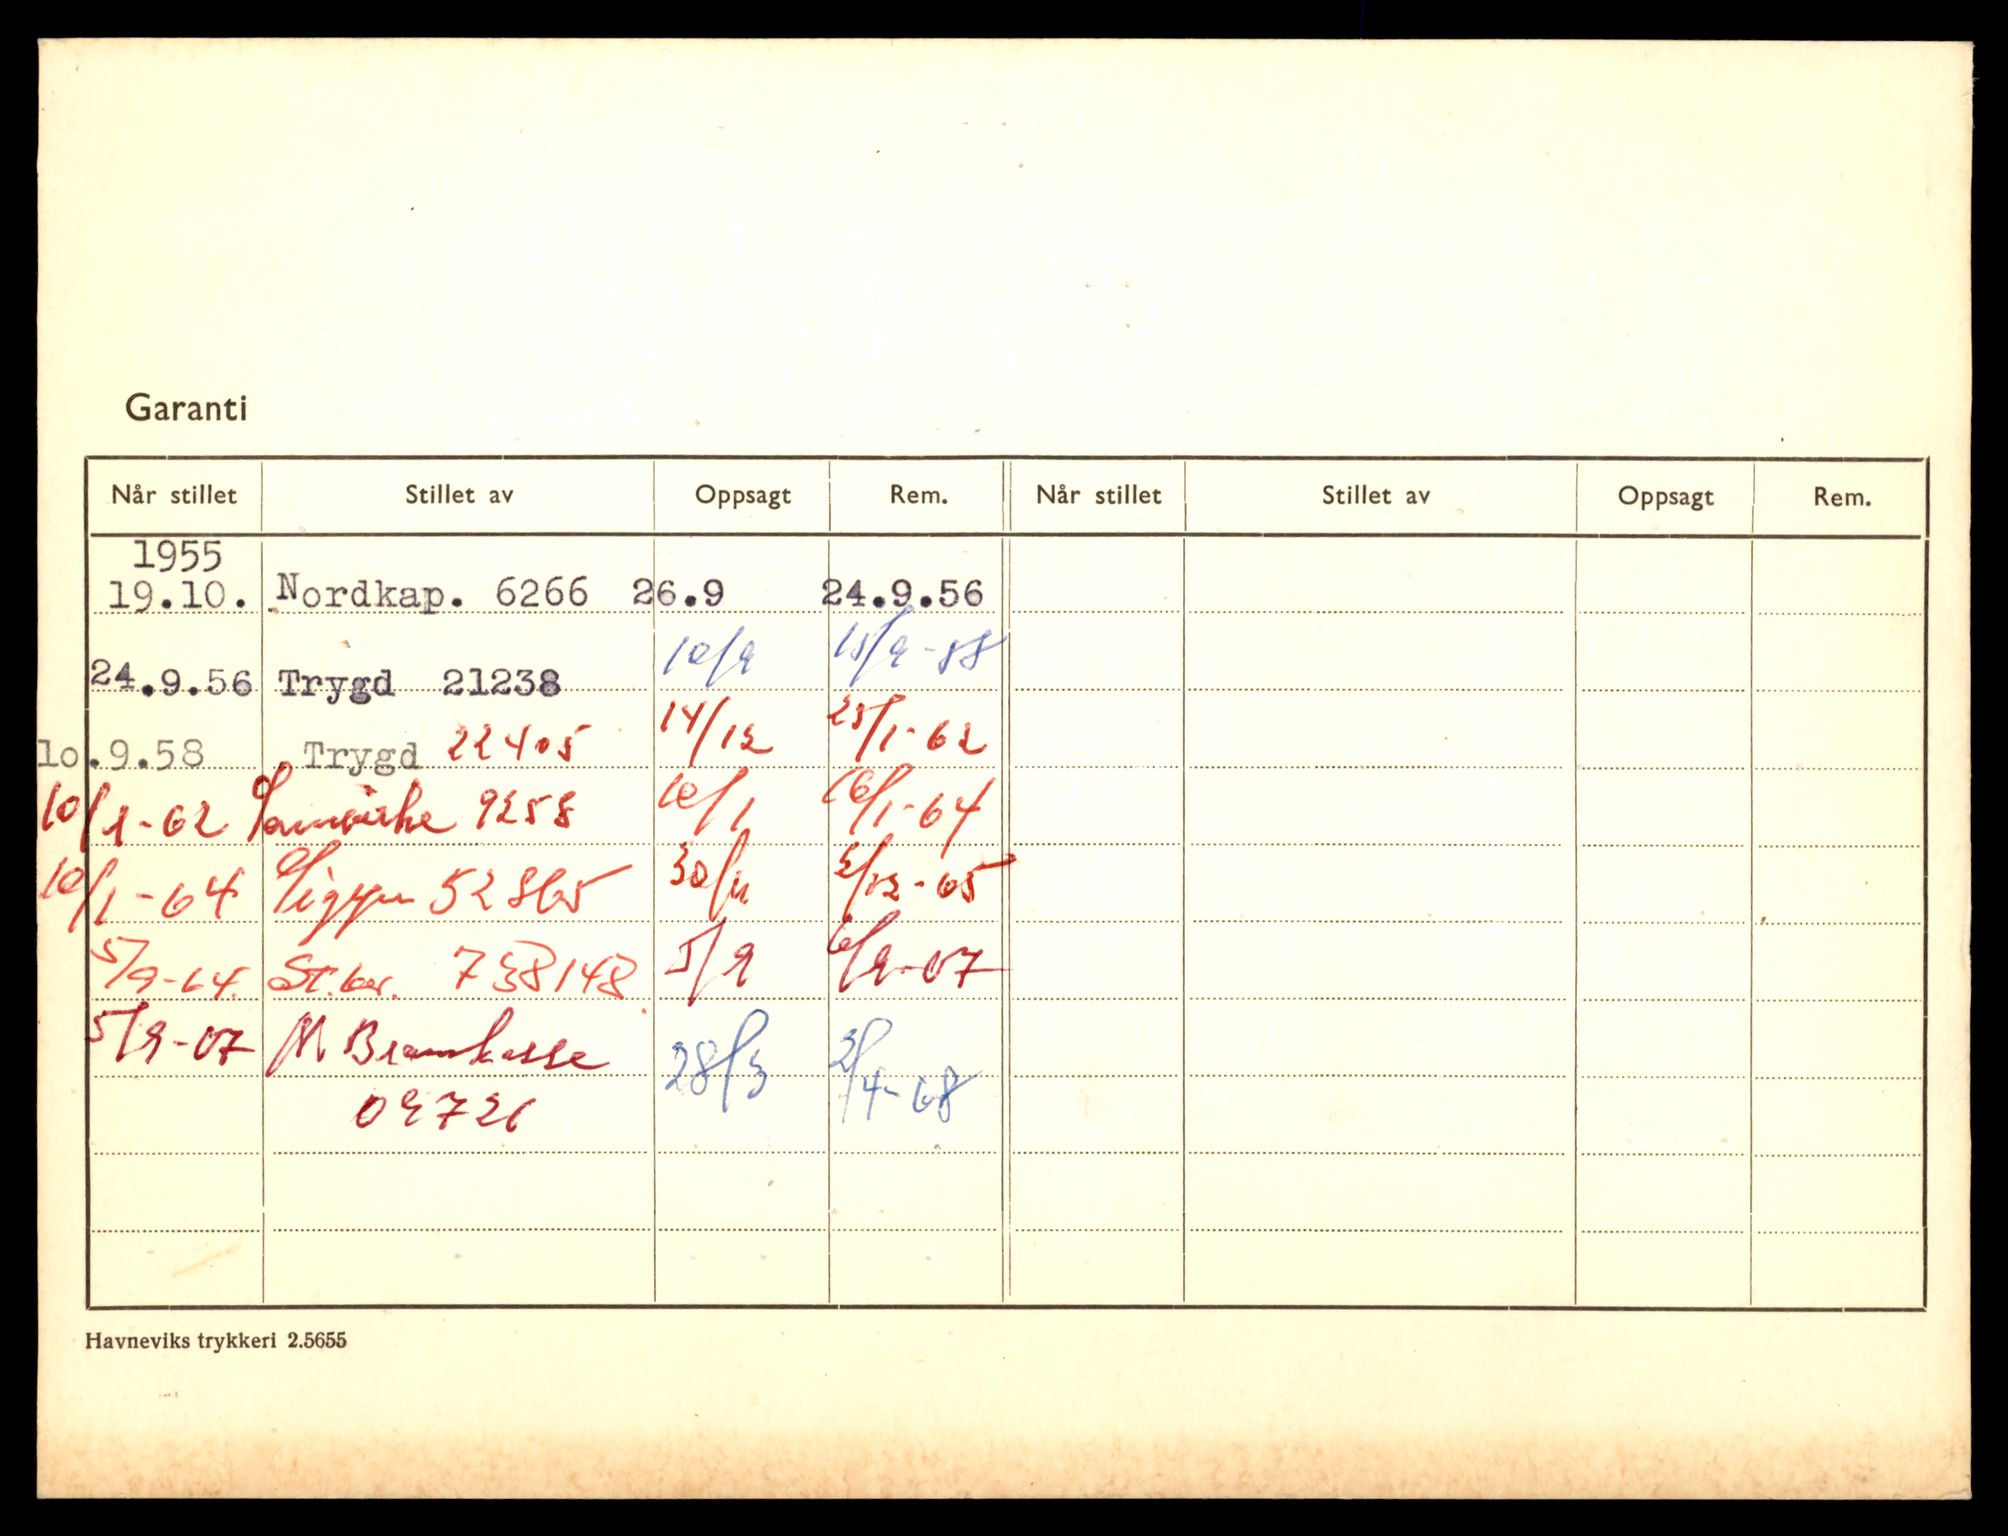 Garanti
Når stillet Stillet av Oppsagt Rem. Når stillet Stillet av Oppsagt Rem.
1955
19.10. Nordkap. 6266 26.9 24.9.56
24.9.56 Trygd 21238 10/9 15/9-58
lo.9.58 Trygd 22405 14/12 25/1-62
10/1-62 Samvirke 9258 10/1 16/1-64
10/1-64 Sigyn 52865 30/11 2/12-65
5/9-64. St.br. 738148 5/9 6/9-67
5/9-67 N Brannkasse 28/3 2/4-68
Havneviks trykkeri 2.5655